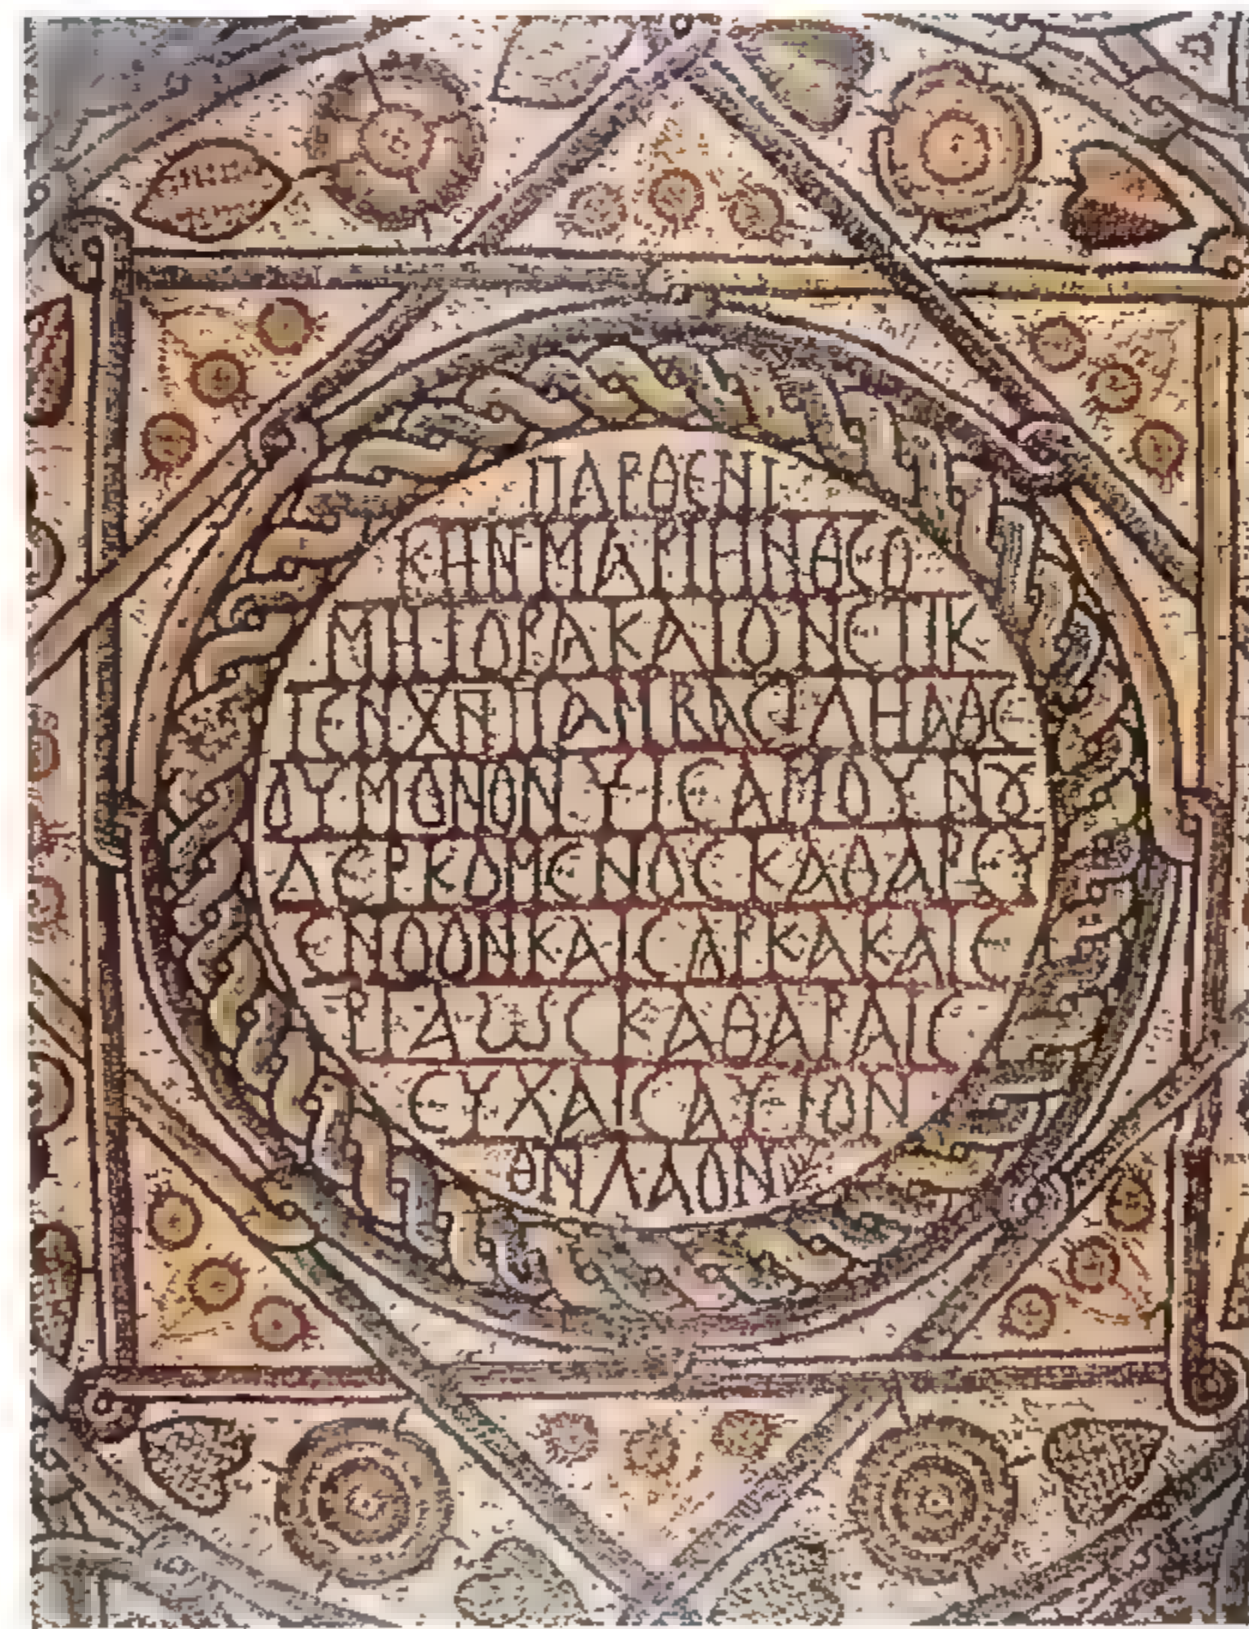 ΠΑΡΘΕΝΙ
ΚΗΝΜΑΡΙΗΝΘΕΟ
ΜΗΤΟΡΑΚΑΙΟΝΕΤΙΚ
ΤΕΝΧΝΠΑΜΒΑCΙΛΗΑΘΕ
ΟΥΜΟΝΟΝΥΙΕΑΜΟΥΝȢ
ΔΕΡΚΟΜΕΝΟCΚΑΘΑΡΕΥ
ΕΝΟΟΝΚΑΙCΑΡΚΑΚΑΙΕ
ΡΓΑΩCΚΑΘΑΡΑΙC
ΕΥΧΑΙCΑΥΤΟΝ
ΘΝΛΑΟΝ